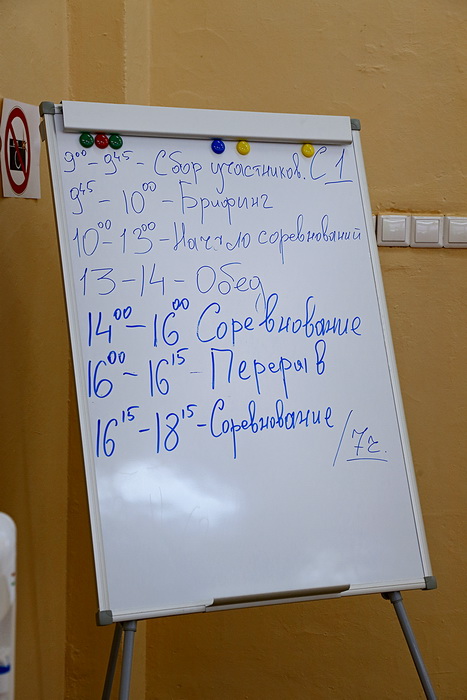 9⁰⁰-9⁴⁵- Сбор участников. С 1
9⁴⁵ - 10⁰⁰ - Брифинг
10⁰⁰-13⁰⁰-Начало соревнований
13-14- Обед
14⁰⁰-16⁰⁰ Соревнование
16⁰⁰- 16¹⁵- Перерыв
16¹⁵-18¹⁵-Соревнование
/7ч.